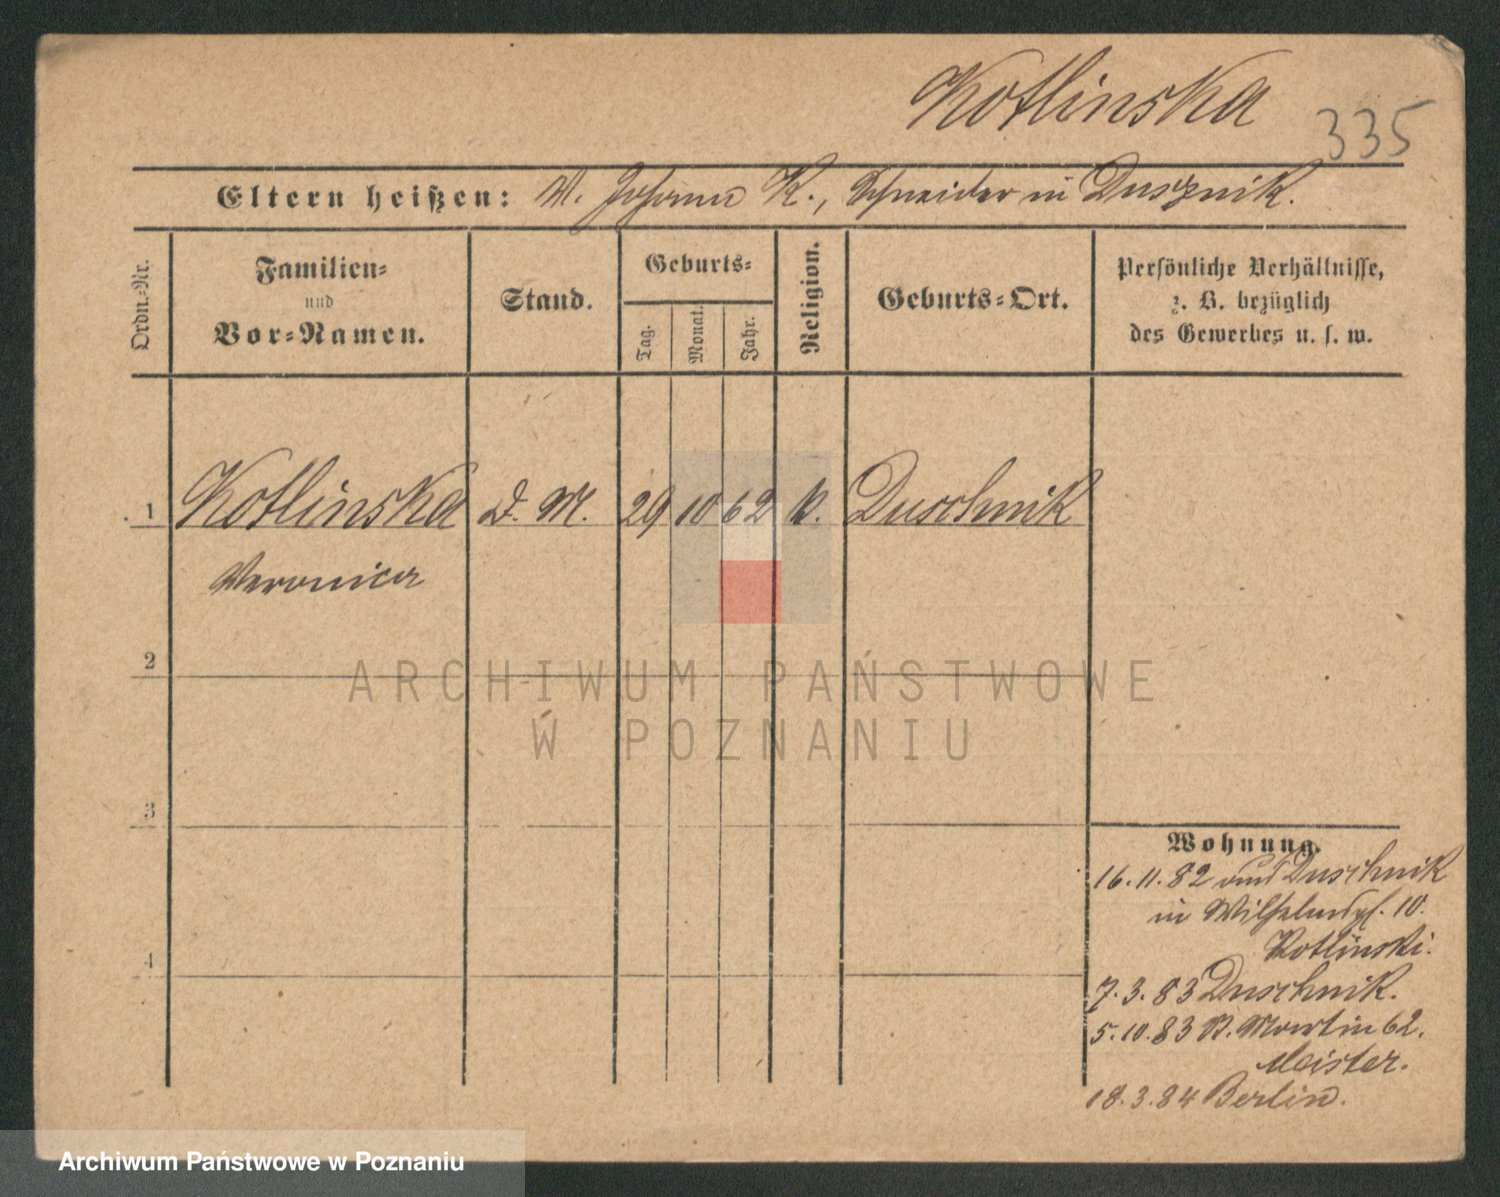 Kotlinska
335
Eltern heißen: W. Johann K., Schneider in Dusznik.
Ordn.-Nr.
Familien-
und
Vor-Namen.
Stand.
Geburts-
Tag.
Monat.
Jahr.
Religion.
Geburts-Ort.
Persönliche Verhältnisse,
z. B. bezüglich
des Gewerbes u. s. w.
1 Kotlinska D. M. 29 10 62 k. Duschnik
Veronica
2
ARCHIWUM PAŃSTWOWE
W POZNANIU
3
Wohnung.
16.11.82 aus Duschnik
in Wilhelmspl. 10.
Kotlinski.
4
7.3.83 Duschnik.
5.10.83 St. Martin 62.
Meister.
18.3.84 Berlin.
Archiwum Państwowe w Poznaniu